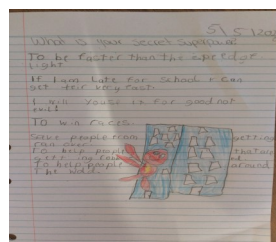 5/5 
What is your secret superpower
To be faster than the speed of
light
If I am late for school I can
get there very fast.
I will youse it for good not
evil
To win races.
Save people from getting
ran over
To help people that are
getting
To help people around
the wold.